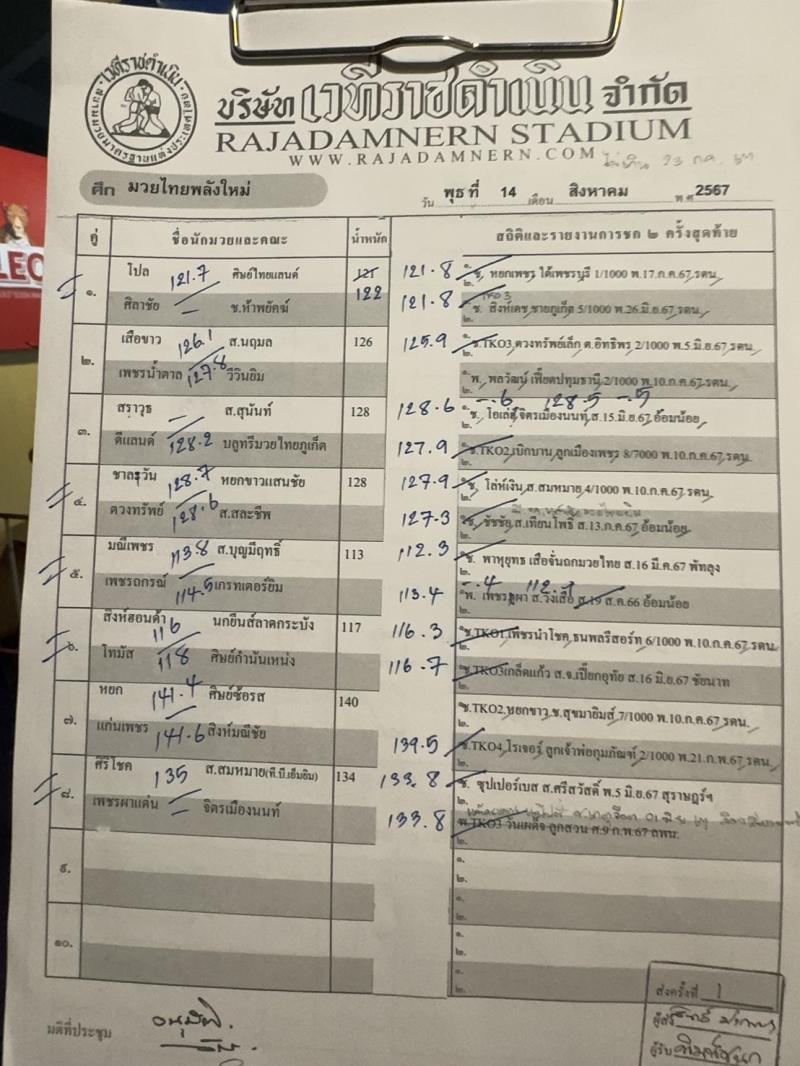 เวทีราชดำเนิน
บริษัท เวทีราชดำเนิน จำกัด
RAJADAMNERN STADIUM
WWW.RAJADAMNERN.COM
ไม่เกิน 23 ก.ค. 67
ศึก มวยไทยพลังใหม่
วัน พุธที่ 14 เดือน สิงหาคม พ.ศ. 2567
LEO
คู่ ชื่อนักมวยและคณะ น้ำหนัก สถิติและรายงานการชก ๒ ครั้งสุดท้าย
๑. โปล 121.7 ศิษย์ไทยแลนด์ 121 122 121.8 ๑.ช. หยกเพชร ใต้เพชรบุรี 1/1000 พ.17.ก.ค.67,รดน.
๒.
ศิลาชัย – ช.ห้าพยัคฆ์ 121.8 ช. TKO 3 สิงห์เดช,ชายภูเก็ต 5/1000 พ.26.มิ.ย.67,รดน.
๒.
๒. เสือขาว 126.1 ส.นฤมล 126 125.9 ช.TKO3,ดวงทรัพย์เล็ก ต.อิทธิพร 2/1000 พ.5.มิ.ย.67,รดน.
๒.
เพชรน้ำตาล 127.8 วีวินยิม พ. พลวัฒน์ เฟี้ยตปทุมธานี,2/1000 พ.10.ก.ค.67,รดน.
๒. -.6 128.5 -.5
๓. สราวุธ – ส.สุนันท์ 128 128.6 ช. โอเล่ จิตรเมืองนนท์,ส.15.มิ.ย.67 อ้อมน้อย
๒.
ดีแลนด์ 128.2 บลูทรีมวยไทยภูเก็ต 127.9 ช.TKO2,เบิกบาน,ลูกเมืองเพชร 8/7000 พ.10.ก.ค.67,รดน.
๒.
๔. ชาละวัน 128.7 หยกขาวแสนชัย 128 127.9 ช. โล่ห์เงิน,ส.สมหมาย,4/1000 พ.10.ก.ค.67,รดน.
๒.
ดวงทรัพย์ 128.6 ส.สละชีพ 127.3 ช. ชัชชัย,ส.เทียนโพธิ์ ส.13.ก.ค.67 อ้อมน้อย
๒.
๕. มณีเพชร 113.8 ส.บุญมีฤทธิ์ 113 112.3 ช. พาหุยุทธ เสือจั่นถกมวยไทย ส.16 มี.ค.67 พัทลุง
๒. -.4 112.9
เพชรถกรณ์ 114.5 เกรทเตอร์ยิม 113.4 พ. เพชรภูผา ส.วังเสือ ส.19 ส.ค.66 อ้อมน้อย
๒.
๖. สิงห์ฮอนด้า 116 นกยีนส์ลาดกระบัง 117 116.3 ช.TKO1,เพชรนำโชค,ธนพลรีสอร์ท 6/1000 พ.10.ก.ค.67,รดน.
๒.
โทมัส 118 ศิษย์กำนันเหน่ง 116.7 ช.TKO3เกล็ดแก้ว ส.จ.เปี๊ยกอุทัย ส.16 มิ.ย.67 ชัยนาท
๒.
๗. หยก 141.4 ศิษย์ช้อรส 140 ช.TKO2,หยกขาว,ช.สุขมายิมส์,7/1000 พ.10.ก.ค.67,รดน.
๒.
แก่นเพชร 141.6 สิงห์มณีชัย 139.5 ช.TKO4,ไรเจอร์ ลูกเจ้าพ่อกุมภัณฑ์ 2/1000 พ.21.ก.พ.67,รดน.
๒.
๘. ศิริโชค 135 ส.สมหมาย(ที.บี.เอ็มยิม) 134 133.8 ช. ซุปเปอร์เบส ส.ศรีสวัสดิ์ พ.5 มิ.ย.67 สุราษฎร์ฯ
๒.
เพชรผาแด่น – จิตรเมืองนนท์ 133.8 พ.TKO3 วันเผด็จ ลูกสวน ศ.9 ก.พ.67 ลพน.
๒.
๙. ๑.
๒.
๑.
๒.
๑๐. ๑.
๒.
๑.
๒.
มติที่ประชุม อนุมัติ.
ส่งครั้งที่ 1
ผู้ส่ง
ผู้รับ